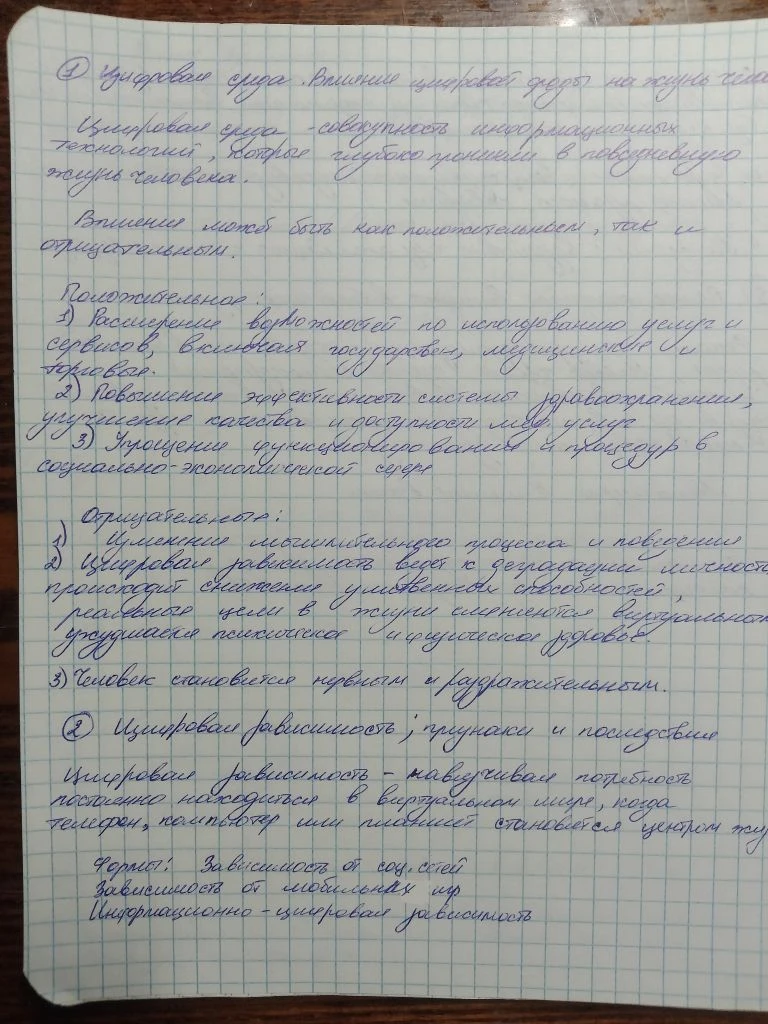 ① Цифровая среда. Влияние цифровой среды на жизнь
Цифровая среда - совокупность информационных
технологий, которые глубоко проникли в повседневную
жизнь человека.
Влияние может быть как положительным, так и
отрицательным.
Положительное:
1) Расширение возможностей по использованию услуг и
сервисов, включая государствен, медицинские и
торговые.
2) Повышение эффективности системы здравоохранения,
улучшение качества и доступности мед. услуг
3) Упрощение функционирования и процедур в
социально-экономической сфере
Отрицательные:
1) Изменение мыслительного процесса и поведения
2) Цифровая зависимость ведет к деградации личности
происходит снижение умственных способностей,
реальные цели в жизни сменяются виртуальным
ухудшается психическое и физическое здоровье.
3) Человек становится нервным и раздражительным.
② Цифровая зависимость; признаки и последствия
Цифровая зависимость - навязчивая потребность
постоянно находиться в виртуальном мире, когда
телефон, компьютер или планшет становится центром
Формы: Зависимость от соц. сетей
Зависимость от мобильных игр
Информационно-цифровая зависимость